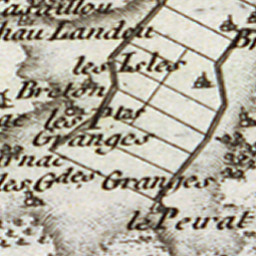 hau Landeu
les Isles
Breton
les Ptes
Granges
rnac
les Gdes Granges
le Peirat